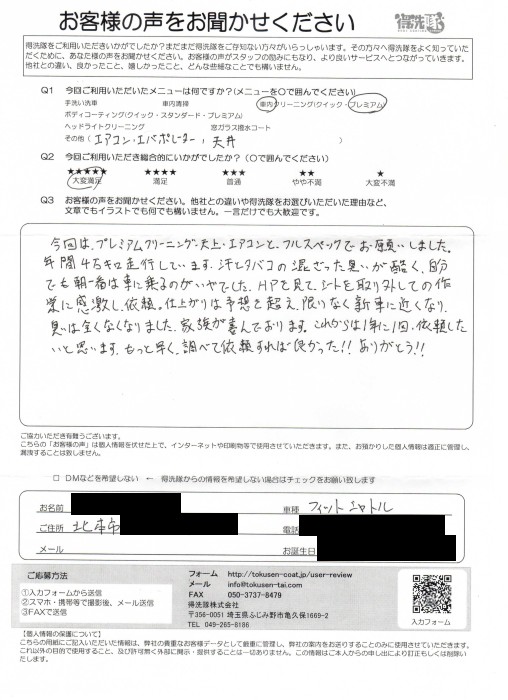 お客様の声をお聞かせください
得洗隊
得洗隊をご利用いただきいかがでしたか？まだまだ得洗隊をご存知ない方々がいらっしゃいます。その方々へ得洗隊をよく知っていた
だくために、あなた様の声をお聞かせください。お客様の声がスタッフの励みにもなり、より良いサービスへとつながっていきます。
他社との違い、良かったこと、嬉しかったこと、どんな些細なことでも構いません。
Q1 今回ご利用いただいたメニューは何ですか？(メニューを〇で囲んでください)
手洗い洗車 車内清掃 車内クリーニング(クイック・プレミアム)
ボディコーティング(クイック・スタンダード・プレミアム)
ヘッドライトクリーニング 窓ガラス撥水コート
その他（エアコン・エバポレーター，天井）
Q2 今回ご利用いただき総合的にいかがでしたか？（〇で囲んでください）
★★★★★ ★★★★ ★★★ ★★ ★
大変満足 満足 普通 やや不満 大変不満
Q3 お客様の声をお聞かせください。他社との違いや得洗隊をお選びいただいた理由など、
文章でもイラストでも何でも構いません。一言だけでも大歓迎です。
今回は、プレミアムクリーニング・天上・エアコンと、フルスペックでお願いしました。
年間4万キロ走行しています。汗とタバコの混ざった臭いが酷く、自分
でも朝一番は車に乗るのがいやでした。HPを見て、シートを取り外しての作
業に感激し、依頼。仕上がりは予想を超え、限りなく新車に近くなり、
臭いは全くなくなりました。家族が喜んでおります。これからは1年に1回、依頼した
いと思います。もっと早く、調べて依頼すれば良かった!! ありがとう!!
ご協力いただき有難うございます。
こちらの「お客様の声」は個人情報を伏せた上で、インターネットや印刷物等で使用させていただきます。また、お預かりした個人情報は適正に管理し、
漏洩することは致しません。
□ DMなどを希望しない ← 得洗隊からの情報を希望しない場合はチェックをお願い致します
お名前 車種 フィットシャトル
ご住所 北本市 電話
メール お誕生日
ご応募方法
①入力フォームから送信
②スマホ・携帯等で撮影後、メール送信
③FAXで送信
フォーム http://tokusen-coat.jp/user-review
メール info@tokusen-tai.com
FAX 050-3737-8479
得洗隊株式会社
〒356-0051 埼玉県ふじみ野市亀久保1669-2
TEL 049-265-8186
入力フォーム
【個人情報の保護について】
こちらの用紙にご記入いただいた情報は、弊社の貴重なお客様データとして厳重に管理し、弊社の案内をお送りすることのみに使用させていただきます。
これ以外の目的で使用すること、及び許可無く外部に開示・提供することは一切ありません。この情報はご本人からの申し出により訂正もしくは削除い
たします。